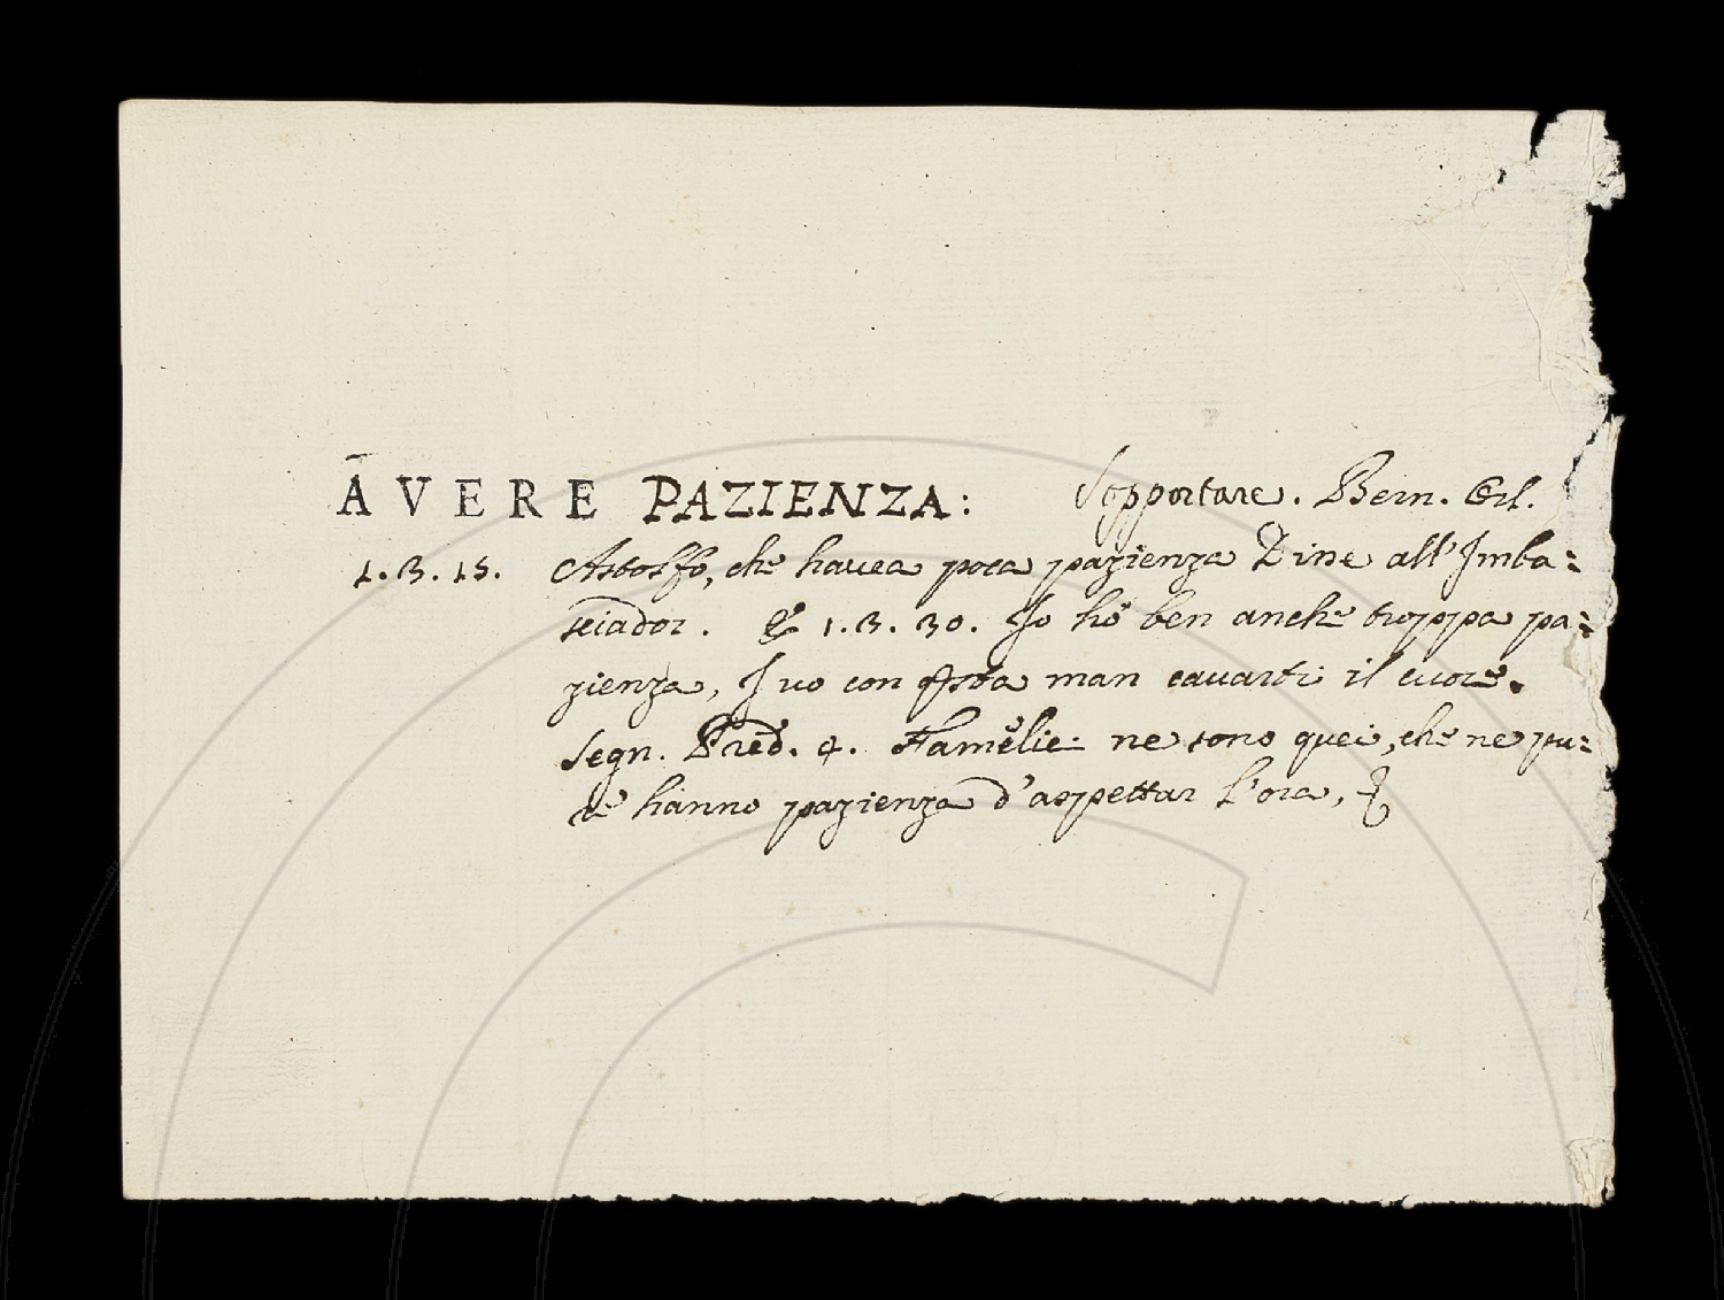 AVERE PAZIENZA: Sopportare. Bern. Orl.
1.3.15. Astolfo, che hauea poca pazienza Disse all'Imba=
sciador. E 1.3.30. Io hò ben anche troppa pa=
zienza, I vo con qsta man cauarti il cuore.
Segn. Pred. 4. Famèlic: ne sono quei, che ne pu=
re hànno pazienza d'aspettar l'ora,